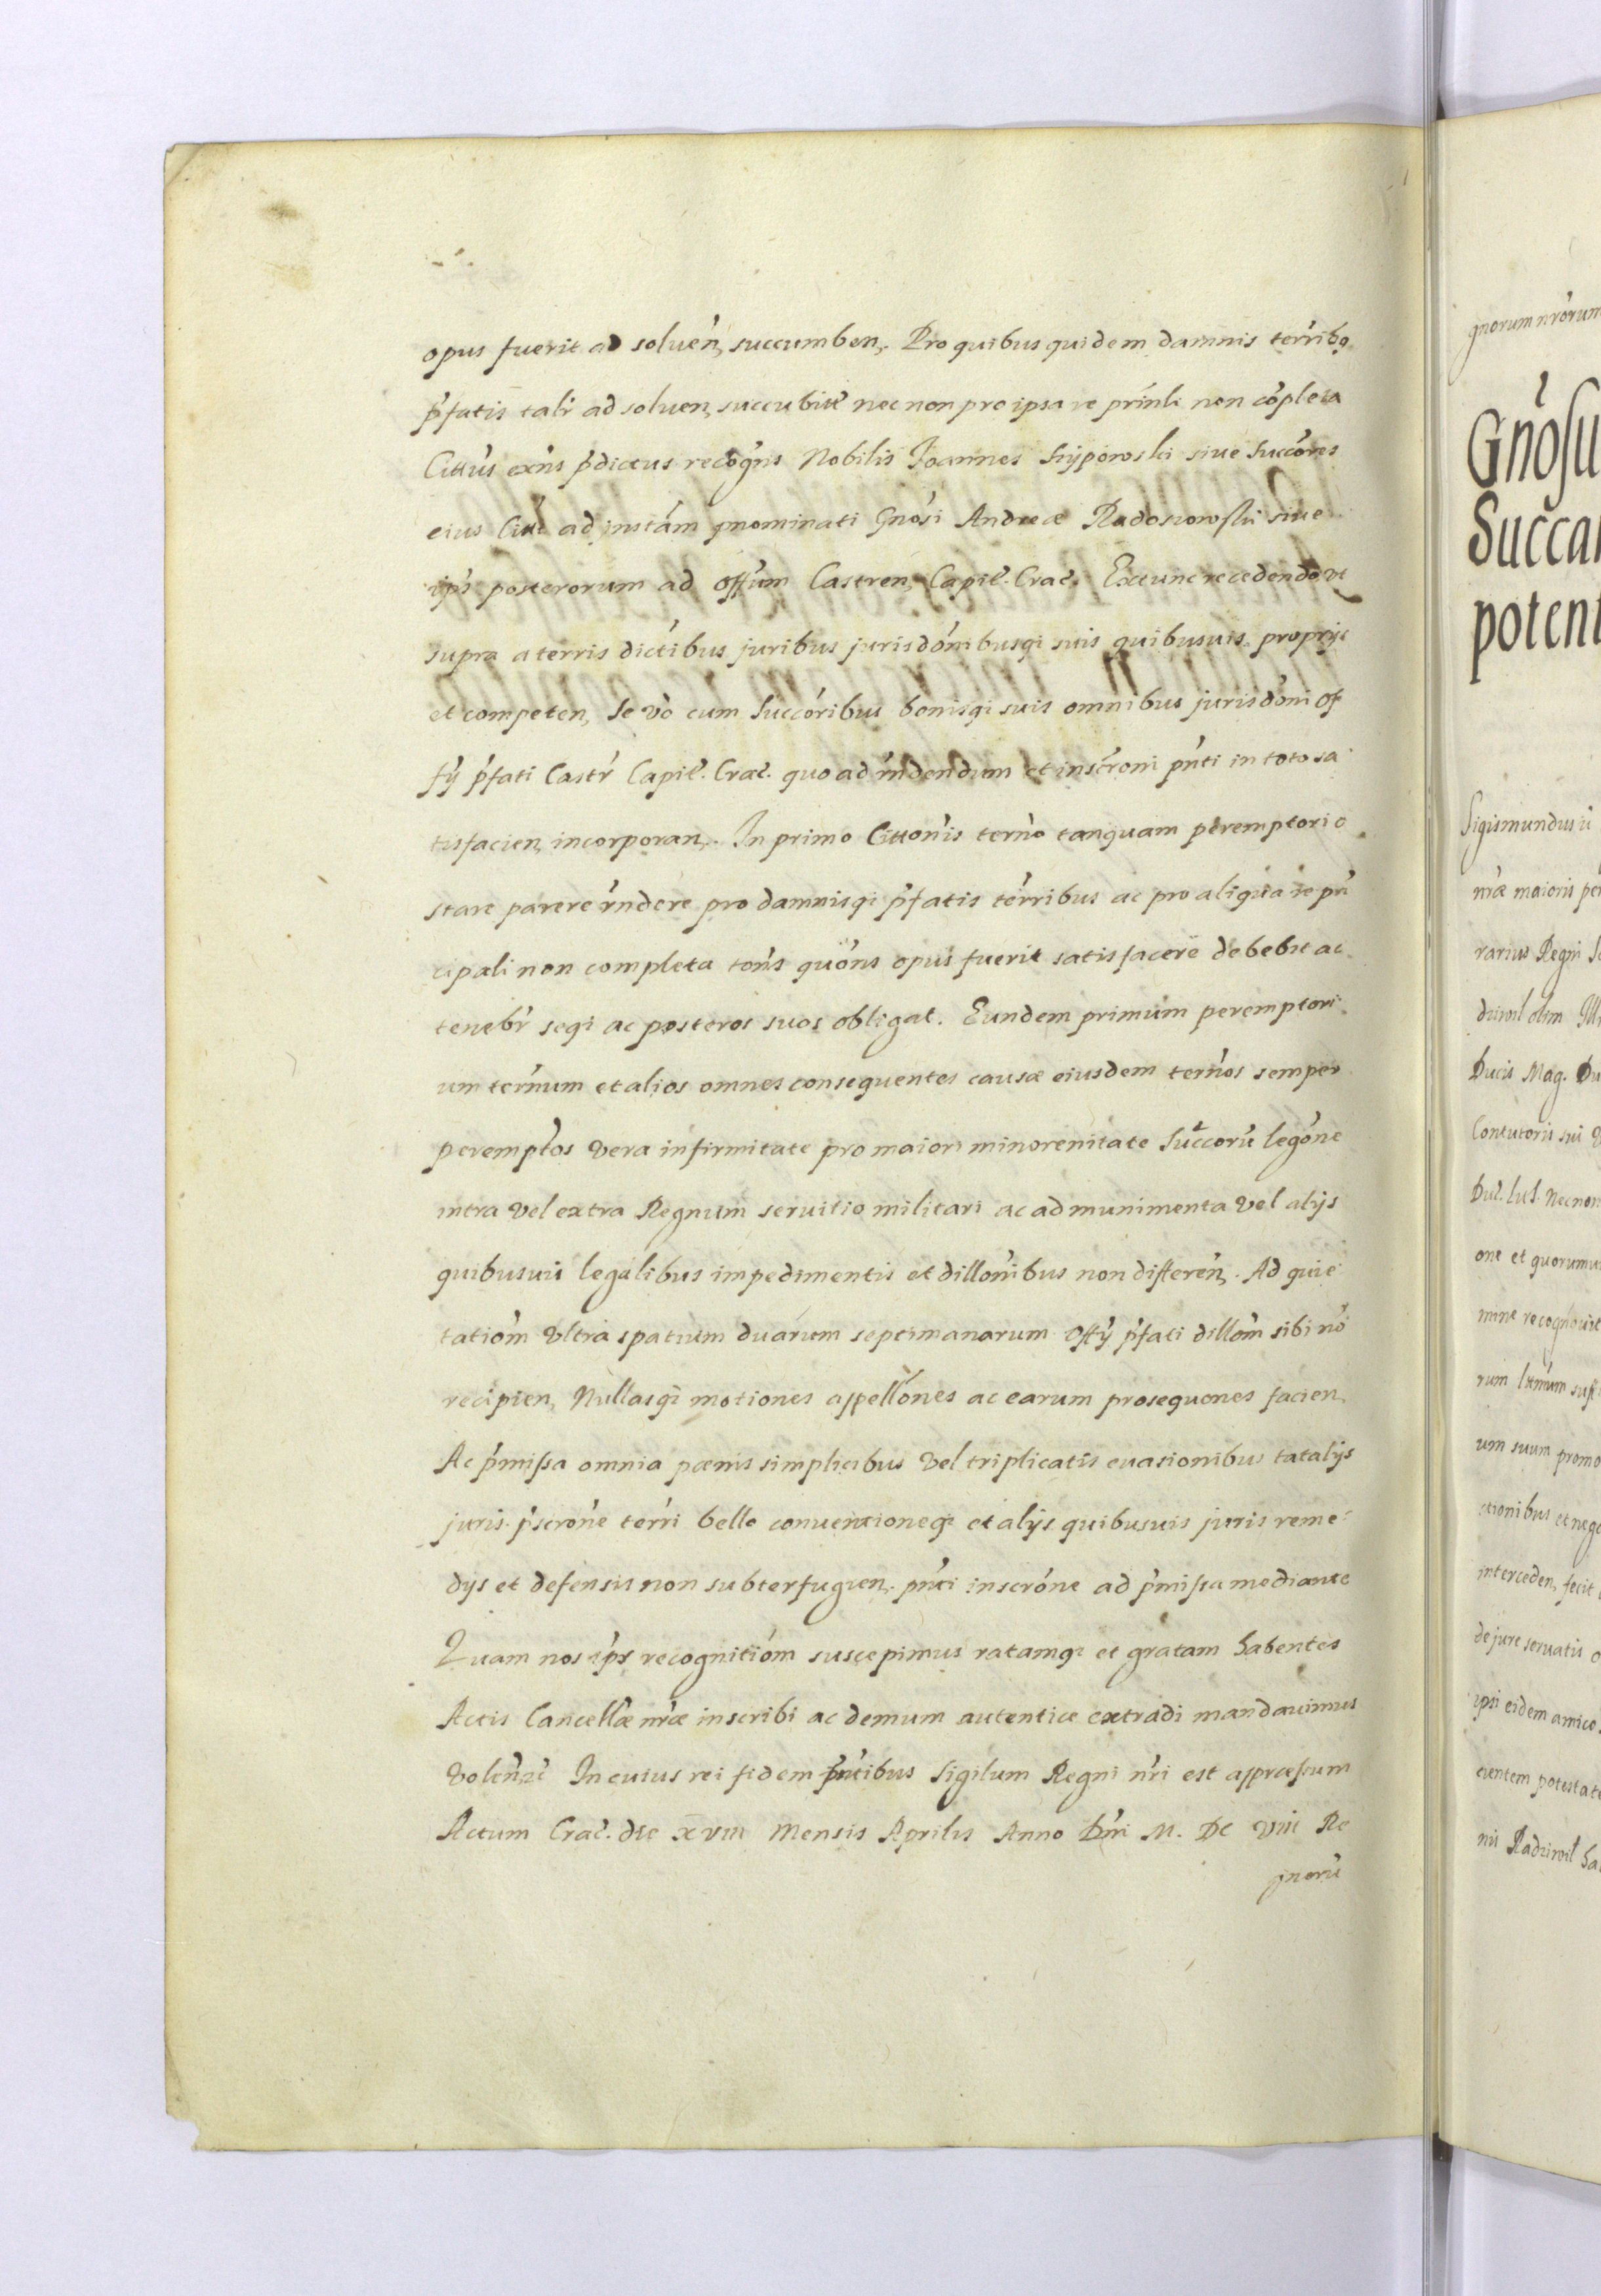 opus fuerit ad soluen̄, succumben̄. Pro quibus quidem damnis terribq
p̄fatis talr̄ ad soluen, succubite nec non pro ipsa re prinli non cōpleta
Cittūs exn̄s p̄dictus recogn̄s Nobilis Joannes siue succōres
eius Citt̄ ad instām p̄nominati Gnōsi Andreæ Radoszowski siue
ip̄s posterorum ad offūm Castren, Capit̄. Crac̄. Extunc recedendo vt
supra a terris dictibus juribus jurisdōnibusq̨ suis quibusuis proprijs
et competen, se vō cum succōribus bonisq̨ suis omnibus jurisdōni of
fÿ p̄fati Castr̄ Capit̄. Crac̄. quo ad r̄ndendum et inscrōni pn̄ti in toto sa
tisfacien, incorporan,. In primo Cittonis tern̄o tanquam peremptorio
stare parere r̄ndere pro damnisq̨ p̄fatis terribus ac pro aliqua re prn̄
cipali non completa tōns quōns opus fuerit satisfacere debebit ac
tenebr̄ seq̨ ac posteros suos obligat. Eundem primum peremptori
um tern̄um et alios omnes consequentes causæ eiusdem tern̄os semper
peremptōs vera infirmitate pro maiori minorenitate Succorū legōne
intra vel extra Regnum seruitio militari ac ad munimenta vel alijs
quibusuis legalibus impedimentis et dillon̄ibus non differen̄,. Ad quie
tatiōm vltra spatium duarum septimanarum offÿ p̄fati dillōm sibi nō
recipien, Nullasq̨ motiones appellōnes ac earum prosequones facien,
Ac p̄missa omnia pœnis simplicibus vel triplicatis euasionibus tatalijs
juris p̄scrōne terri bello conuentioneq̨ et alijs quibusuis juris reme
dijs et defensis non subterfugien,. pn̄ti inscrōne ad p̄missa mediante
Quam nos ip̄s recognitiōm suscepimus ratamq̨ et gratam habentes
Actis Cancellæ nr̄æ inscribi ac demum autentice extradi mandauimus
In cuius rei fidem pn̄tibus Sigilum Regni nr̄i est appræssum
Actum Crac̄. die xviii Mensis Aprilis Anno Dn̄i M. DC viii Re
gnorū
gnorum nrōrum
Gnōsu
Succa
potent
Sigismundus
nr̄æ maioris per
rarius Regni
dziwil olim Ill
Ducis Mag. Du
Contutoris sui
Duc̄. Lut. Necnon
one et quorumu
mine recognouit
rum
um suum promo
ctionibus et nego
interceden, fecit
de jure seruatis
ipsi eidem amico
cientem potestate
nii Radziwil ha